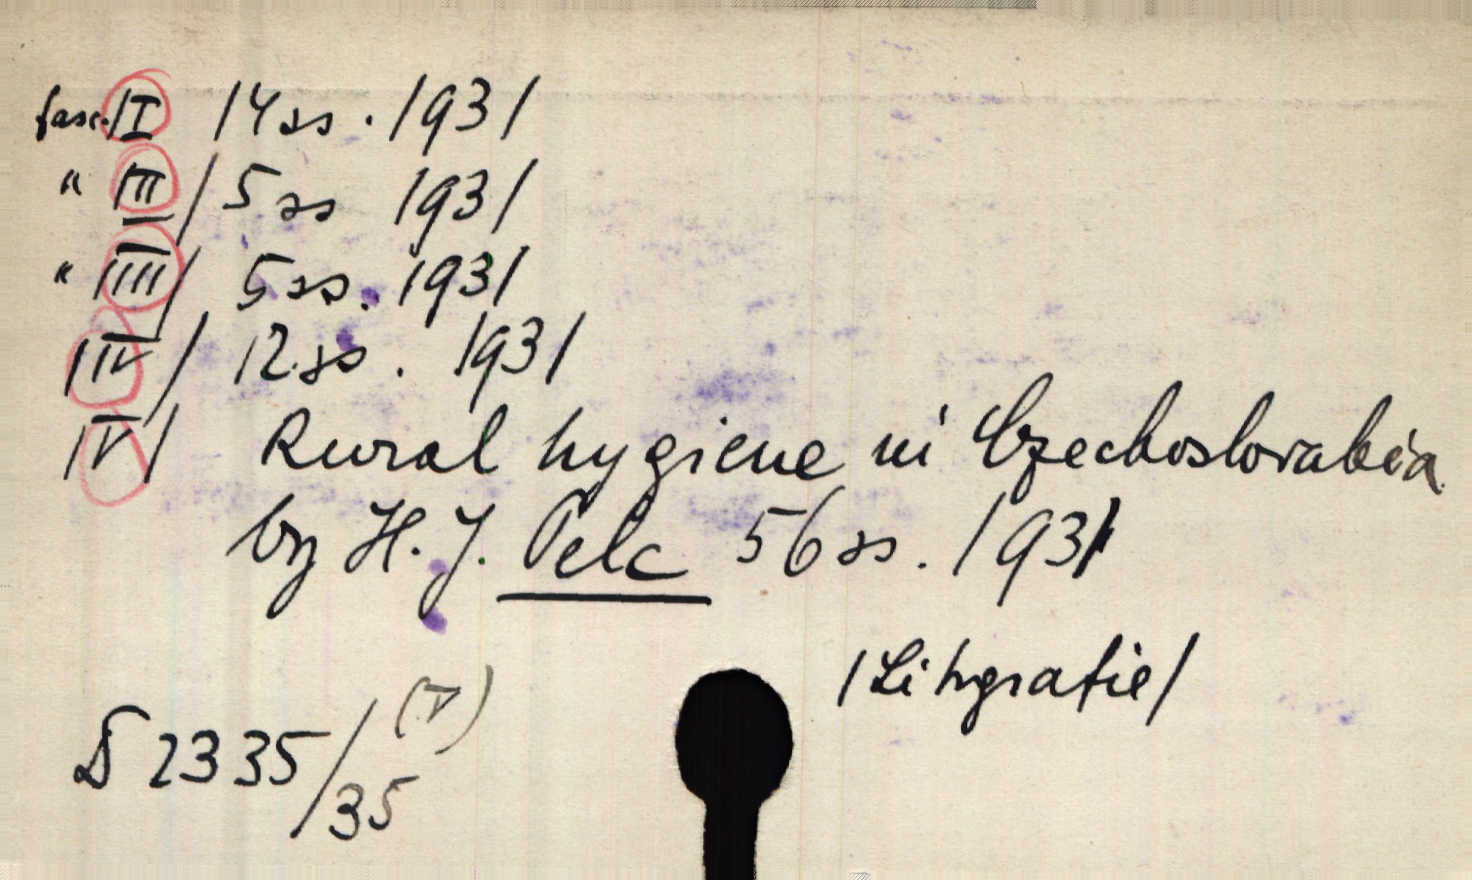 fasc. /I 14 ss. 1931
" /II/ 5 ss 1931
" /III/ 5 ss. 1931
/IV/ 12 ss. 1931
/V/ Rural hygiene in Czechoslovakia
by H. J. Pelc 56 ss. 1931
/Litografie/
2335/35 (V)